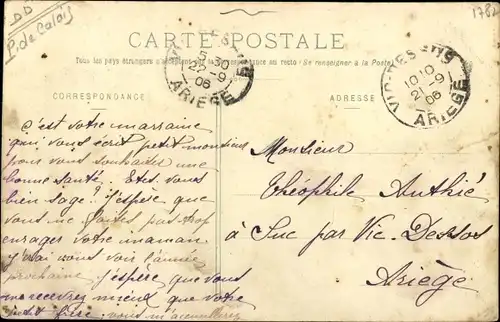 DD
P. de Calais
1782
CARTE POSTALE
Tous les pays étrangers n'acceptent pas la correspondance au recto (Se renseigner à la Poste)
5 30
22 - 9
06
ARIEGE
VIC-DESSOS
10 10
21 - 9
06
ARIEGE
CORRESPONDANCE
ADRESSE
C'est votre marraine
qui vous écrit petit monsieur
pour vous souhaiter une
bonne santé. Etes vous
bien sage? J'espère que
vous ne faites pas trop
enrager votre maman
j'irai vous voir l'année
prochaine j'espère que vous
me recevrez mieux que votre
petit frère. vous m'accueillerez
Monsieur
Théophile Authié
à Suc par Vic-Dessos
Ariège